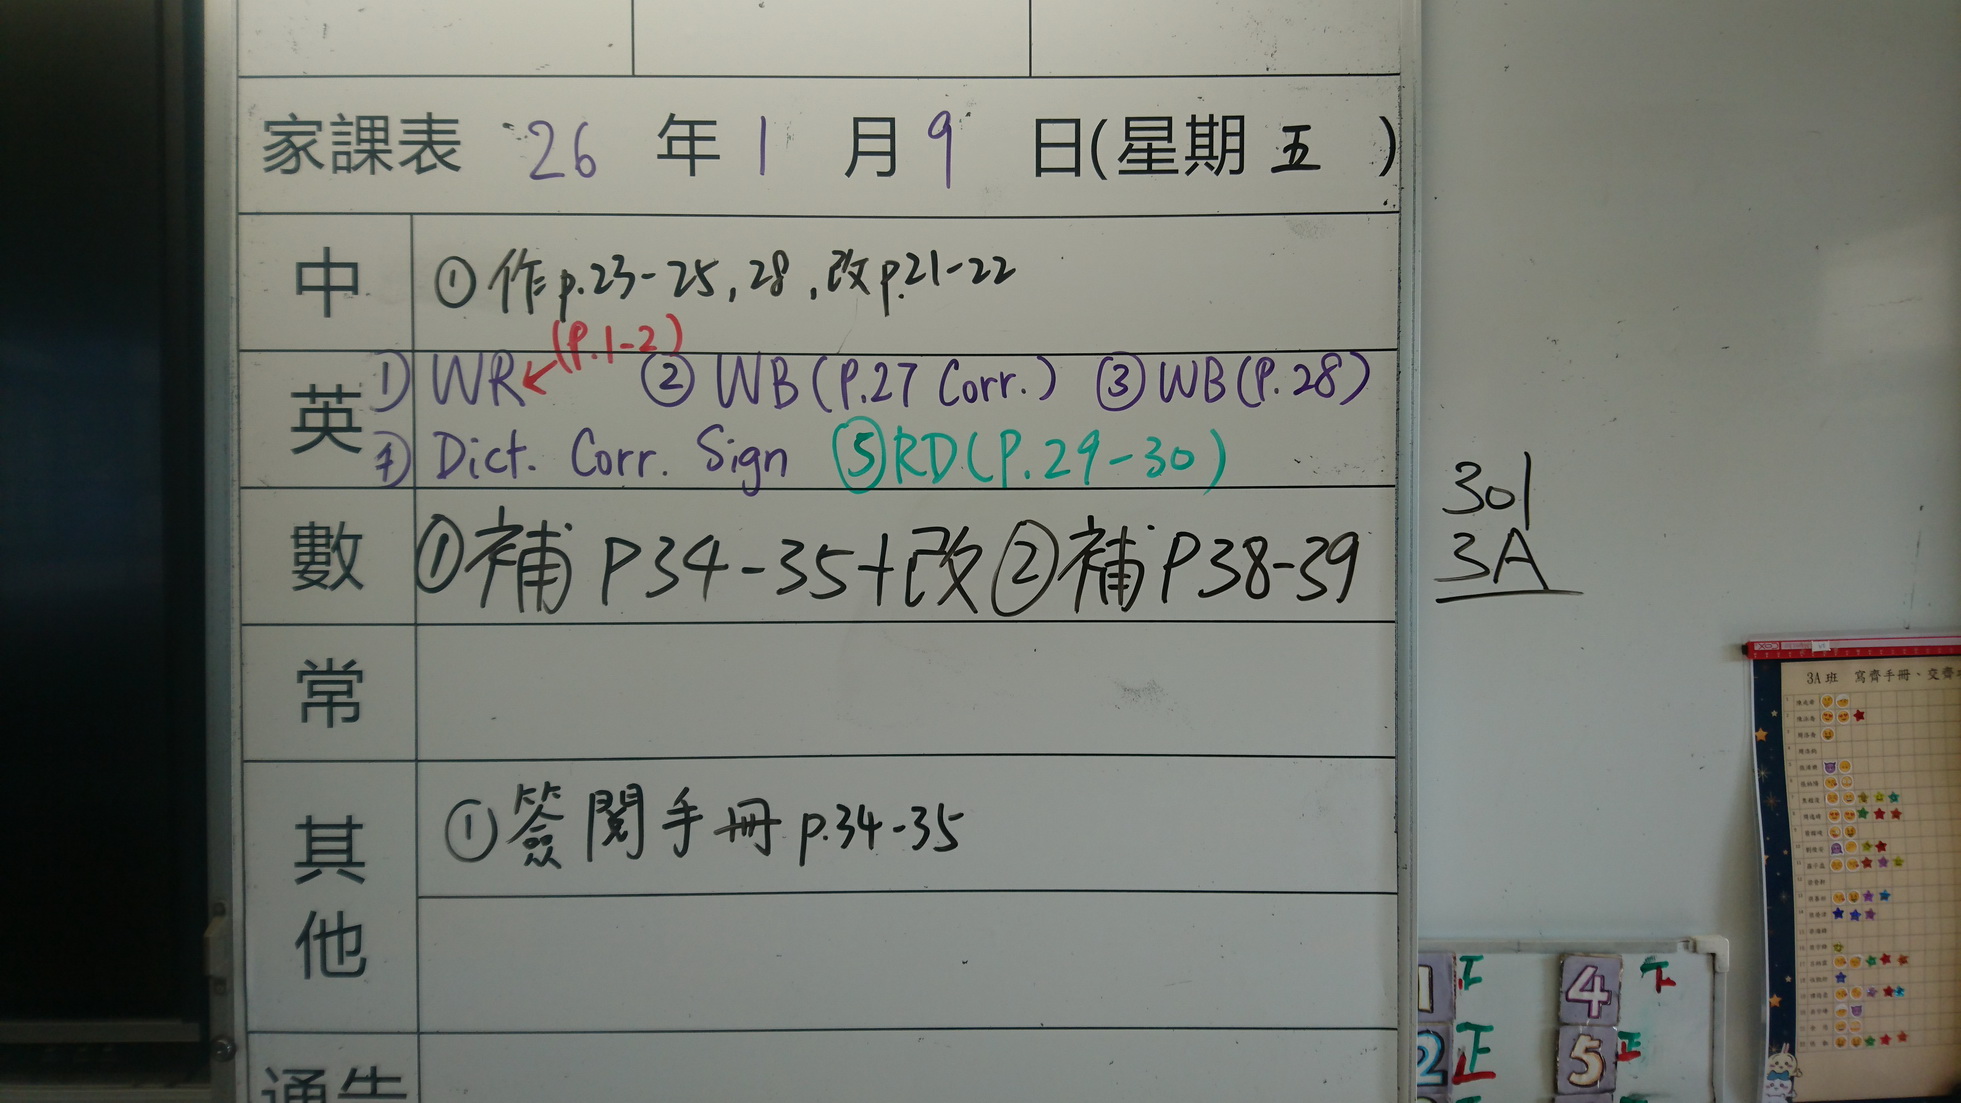 家課表 26 年 1 月 9 日(星期 五 )
中 ① 作 p.23-25, 28, 改 p.21-22
(P.1-2)
英 ① WR ② WB (P.27 Corr.) ③ WB (P.28)
④ Dict. Corr. Sign ⑤ RD (P.29-30)
數 ① 補 P34-35+改 ② 補 P38-39
常
其他 ① 簽閱手冊 p.34-35
通告
301
3A
3A 班 寫齊手冊、交齊
1 正 4 下
2 正 5 正